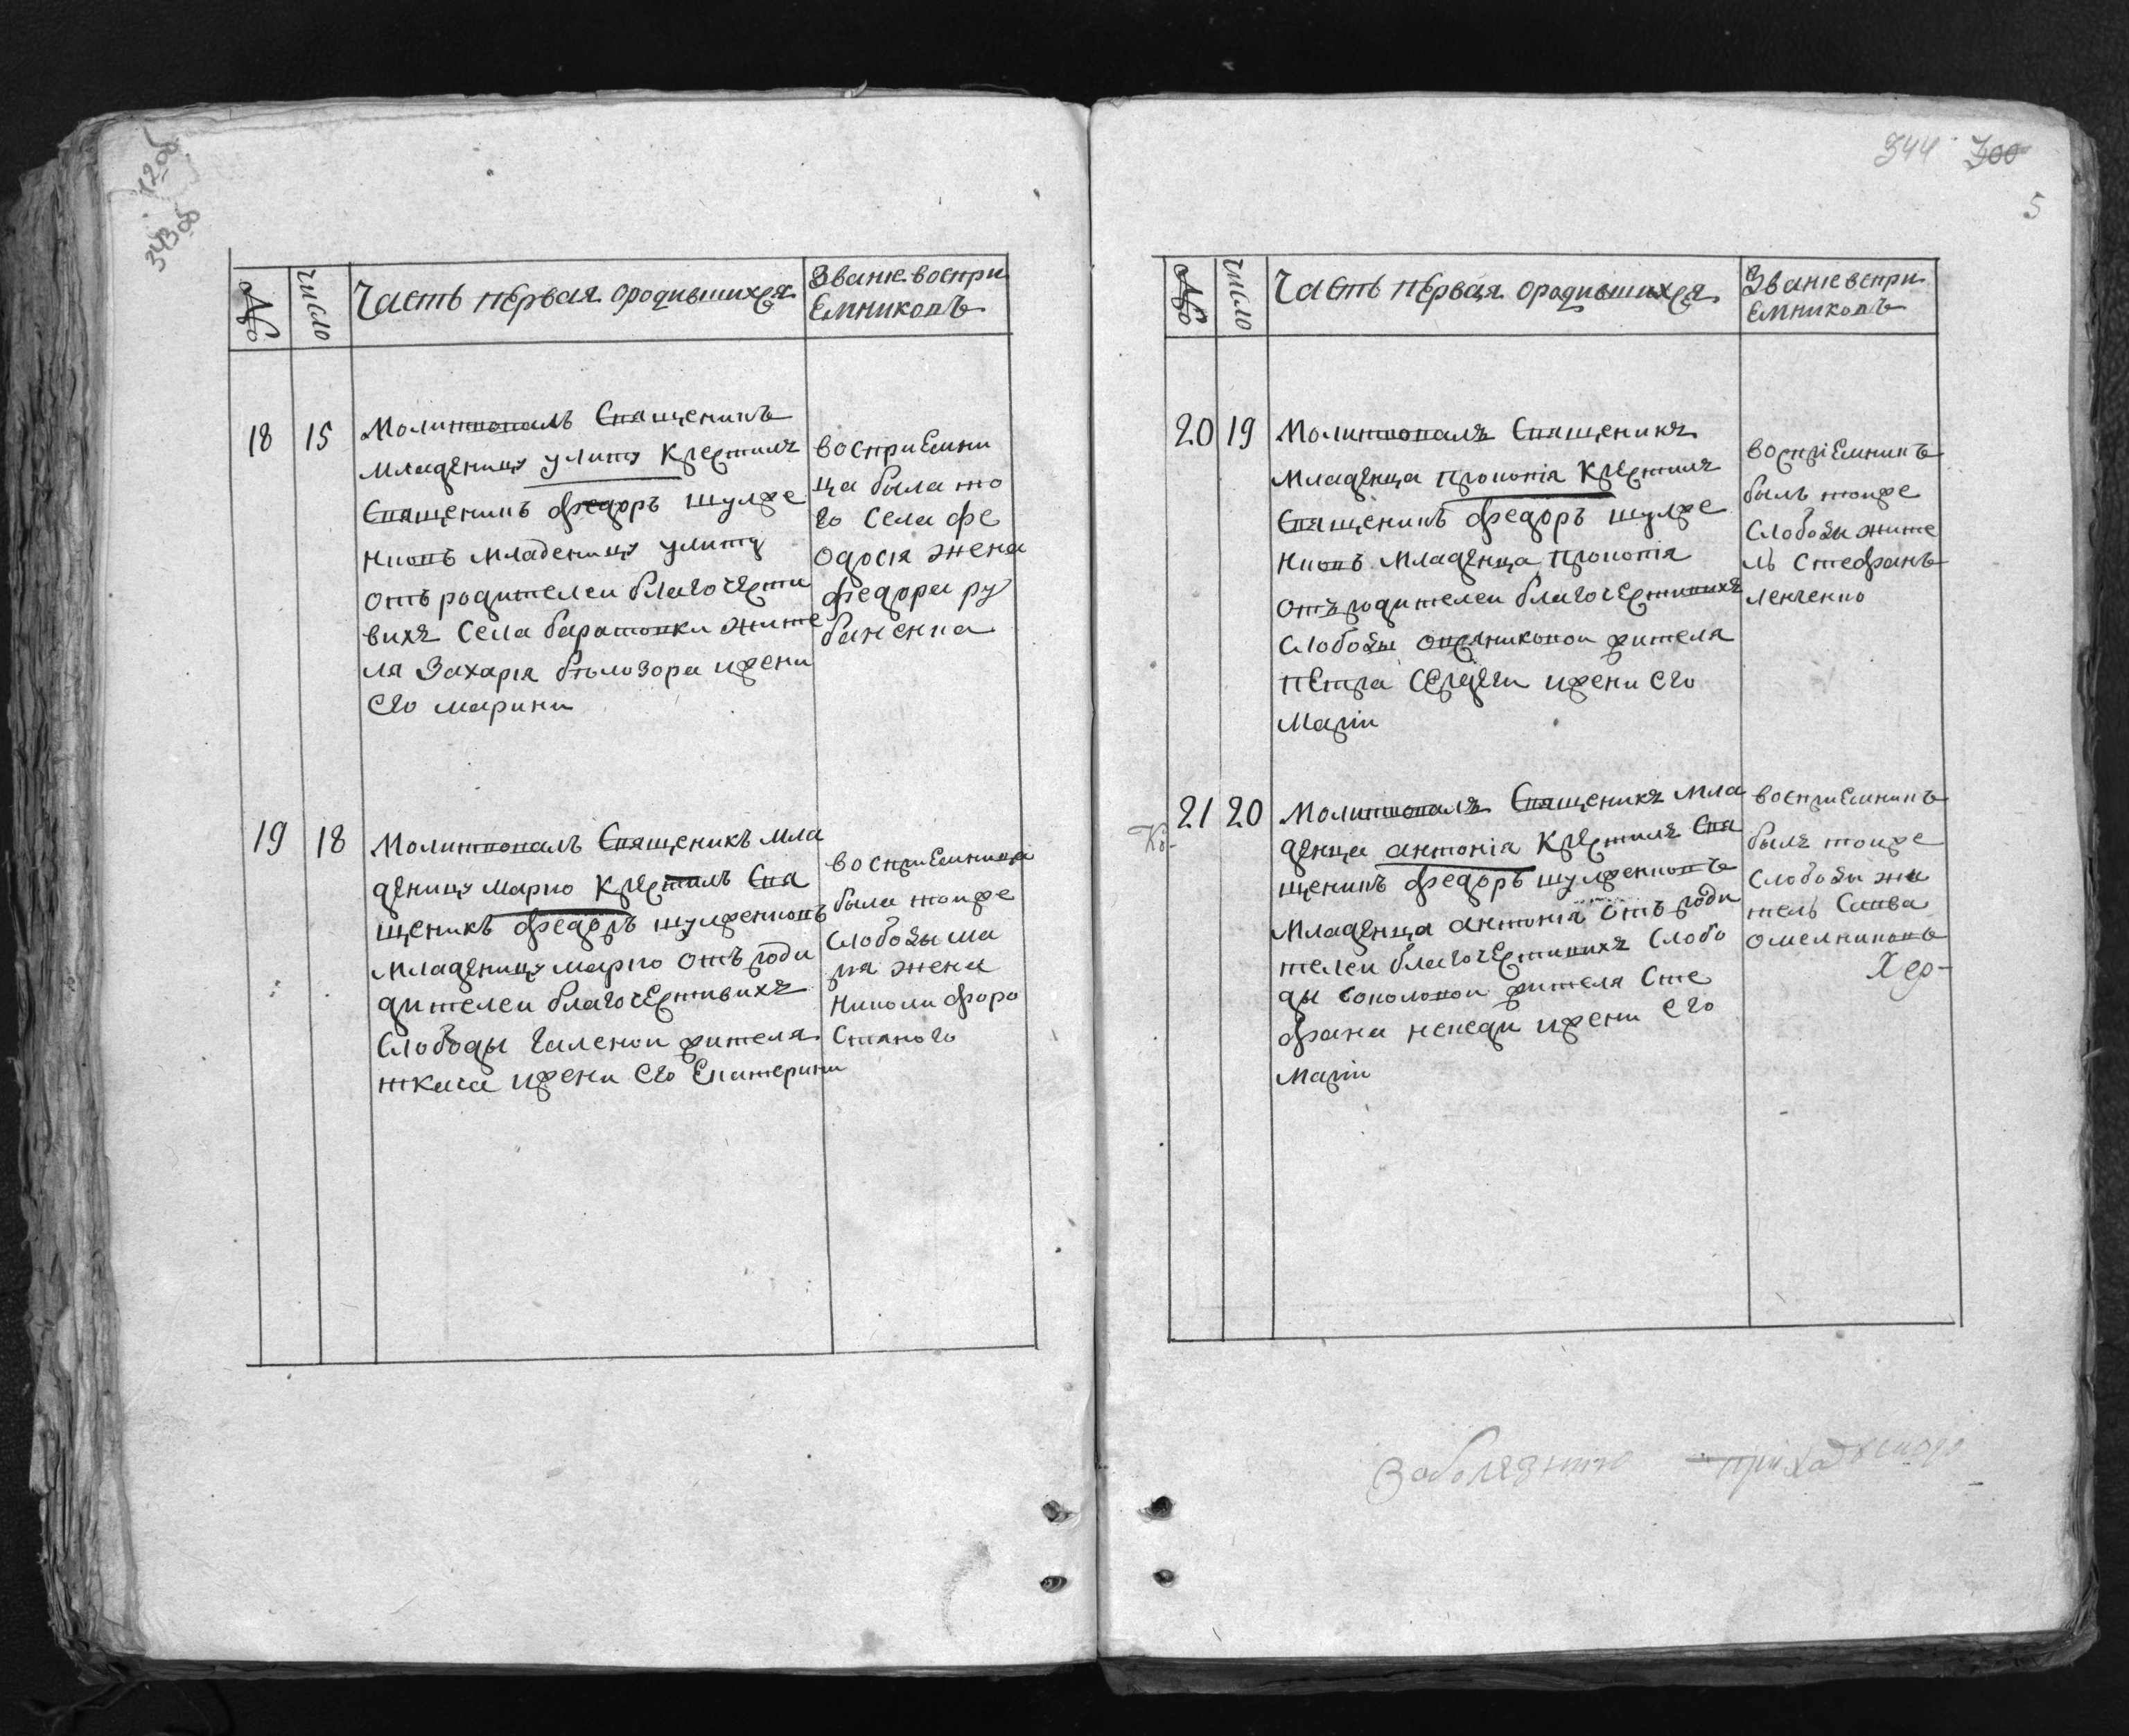 343об
№
число
Часть первая ородившихся
Званїе воспри
емниковъ
18
15
Молитвовалъ Священикъ
младеницу улиту Крестилъ
Священикъ федоръ шулже
нковъ младеницу улиту
отъ родителеи благочести
вихъ Села баратовки жите
ля Захарїя бѣлозора ижени
Его марини
восприЕмни
ца была то
го Села фе
одосїя жена
федора ру
баненка
19
18
Молитвовалъ Священикъ мла
деницу марию Крестилъ Свя
щеникъ федоръ шулженковъ
младеницу марию отъ роди
дителеи благочестивихъ
Слободы жителя
ткача ижени Его Екатерини
восприЕмница
была тоиже
Слободы ма
рїя жена
Николи форо
Стяного
344 300
5
№
число
Часть первая ородившихся
Званїе вспри
емниковъ
20
19
Молитвовалъ Священикъ
младенца прокопїя Крестилъ
Священикъ федоръ шулже
нковъ младенца прокопїя
отъ родителеи благочестивихъ
Слободы жителя
петра ижени Его
Марїи
воспрїЕмникъ
былъ тоиже
Слободы жите
ль Стефанъ
левченко
21
20
Молитвовалъ Священикъ мла
денца антонїа Крестилъ Свя
щеникъ федоръ шулженковъ
младенца антонїа отъ роди
телеи благочестивихъ Слобо
ды Соколовои жителя Сте
фана непеди ижени Его
Марїи
восприЕмникъ
былъ тоиже
Слободы жи
тель Савва
омелниковъ
Хер-